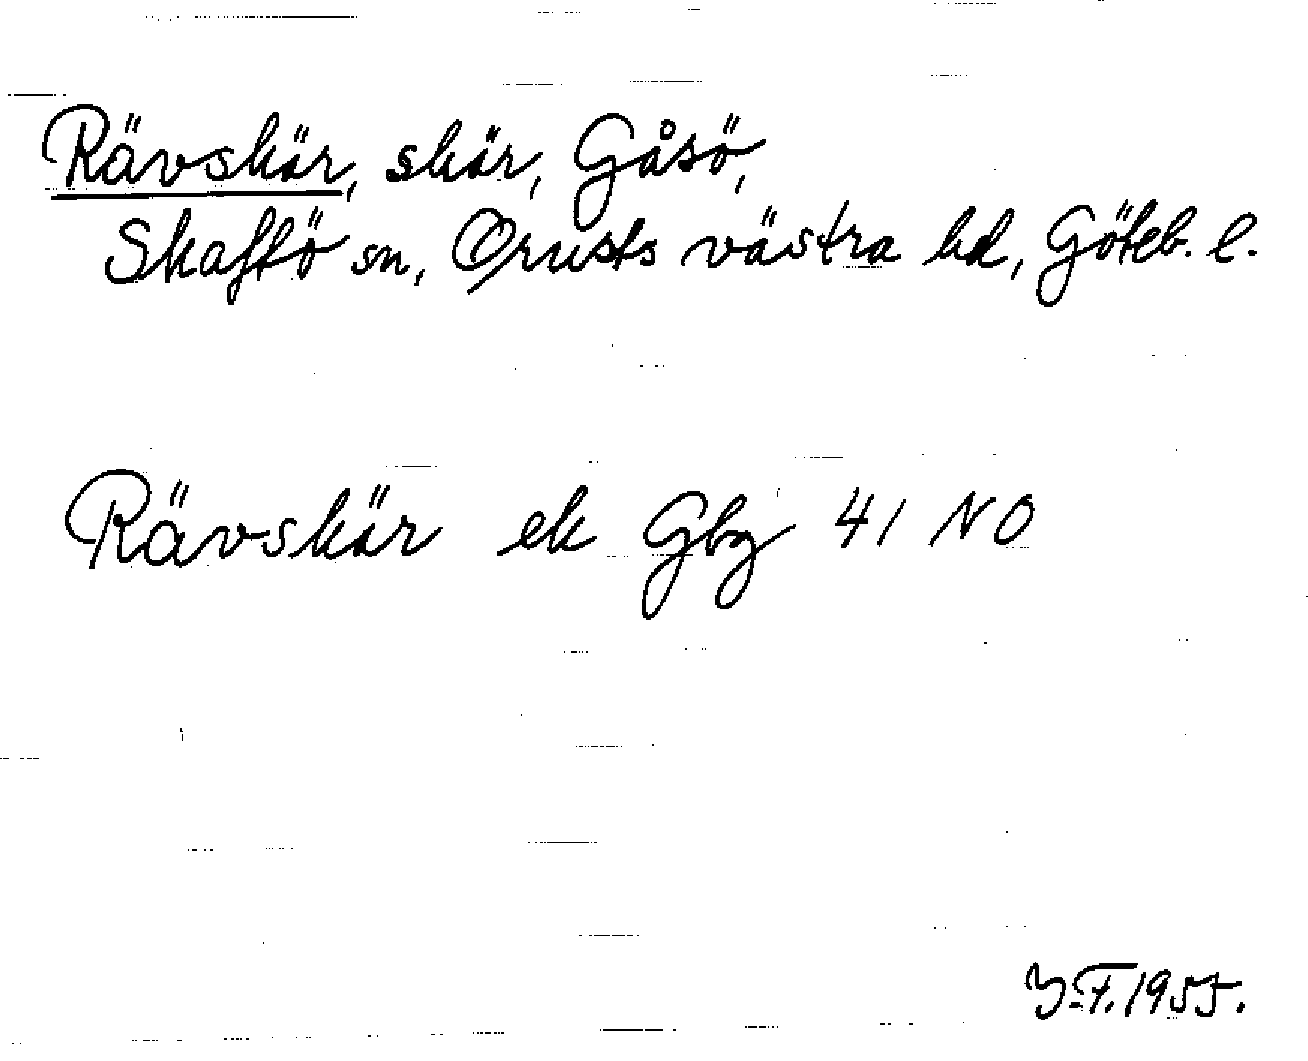 Rävskär, skär, Gåsö,
Skaftö sn, Orusts västra hd, Göteb. l.
Rävskär ek Gbg 41 NO
Y.F. 1955.